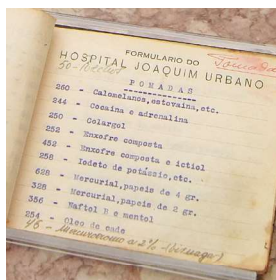 FORMULARIO DO
Pomadas
HOSPITAL JOAQUIM URBANO
POMADAS
260 - Calomelanos, estovaina, etc.
244 - Cocaina e adrenalina
250 - Colargol
252 - Enxofre composta
452 - Enxofre composta e ictiol
258 - Iodeto de potássio, etc.
628 - Mercurial, papeis de 4 gr.
328 - Mercurial, papeis de 2 gr.
356 - Naftol B e mentol
254 - Oleo de cade
46 - Mercurocromo a 2%